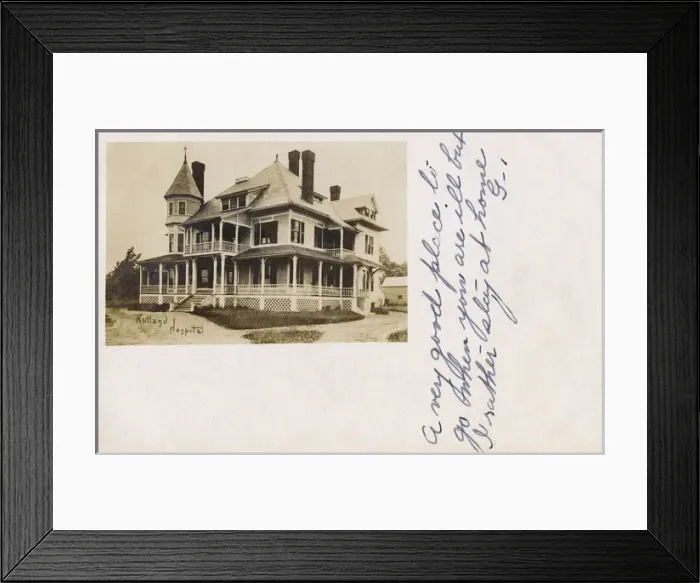 Rutland
Hospital
A very good place to
go when you are ill but
I rather stay at home
G-1